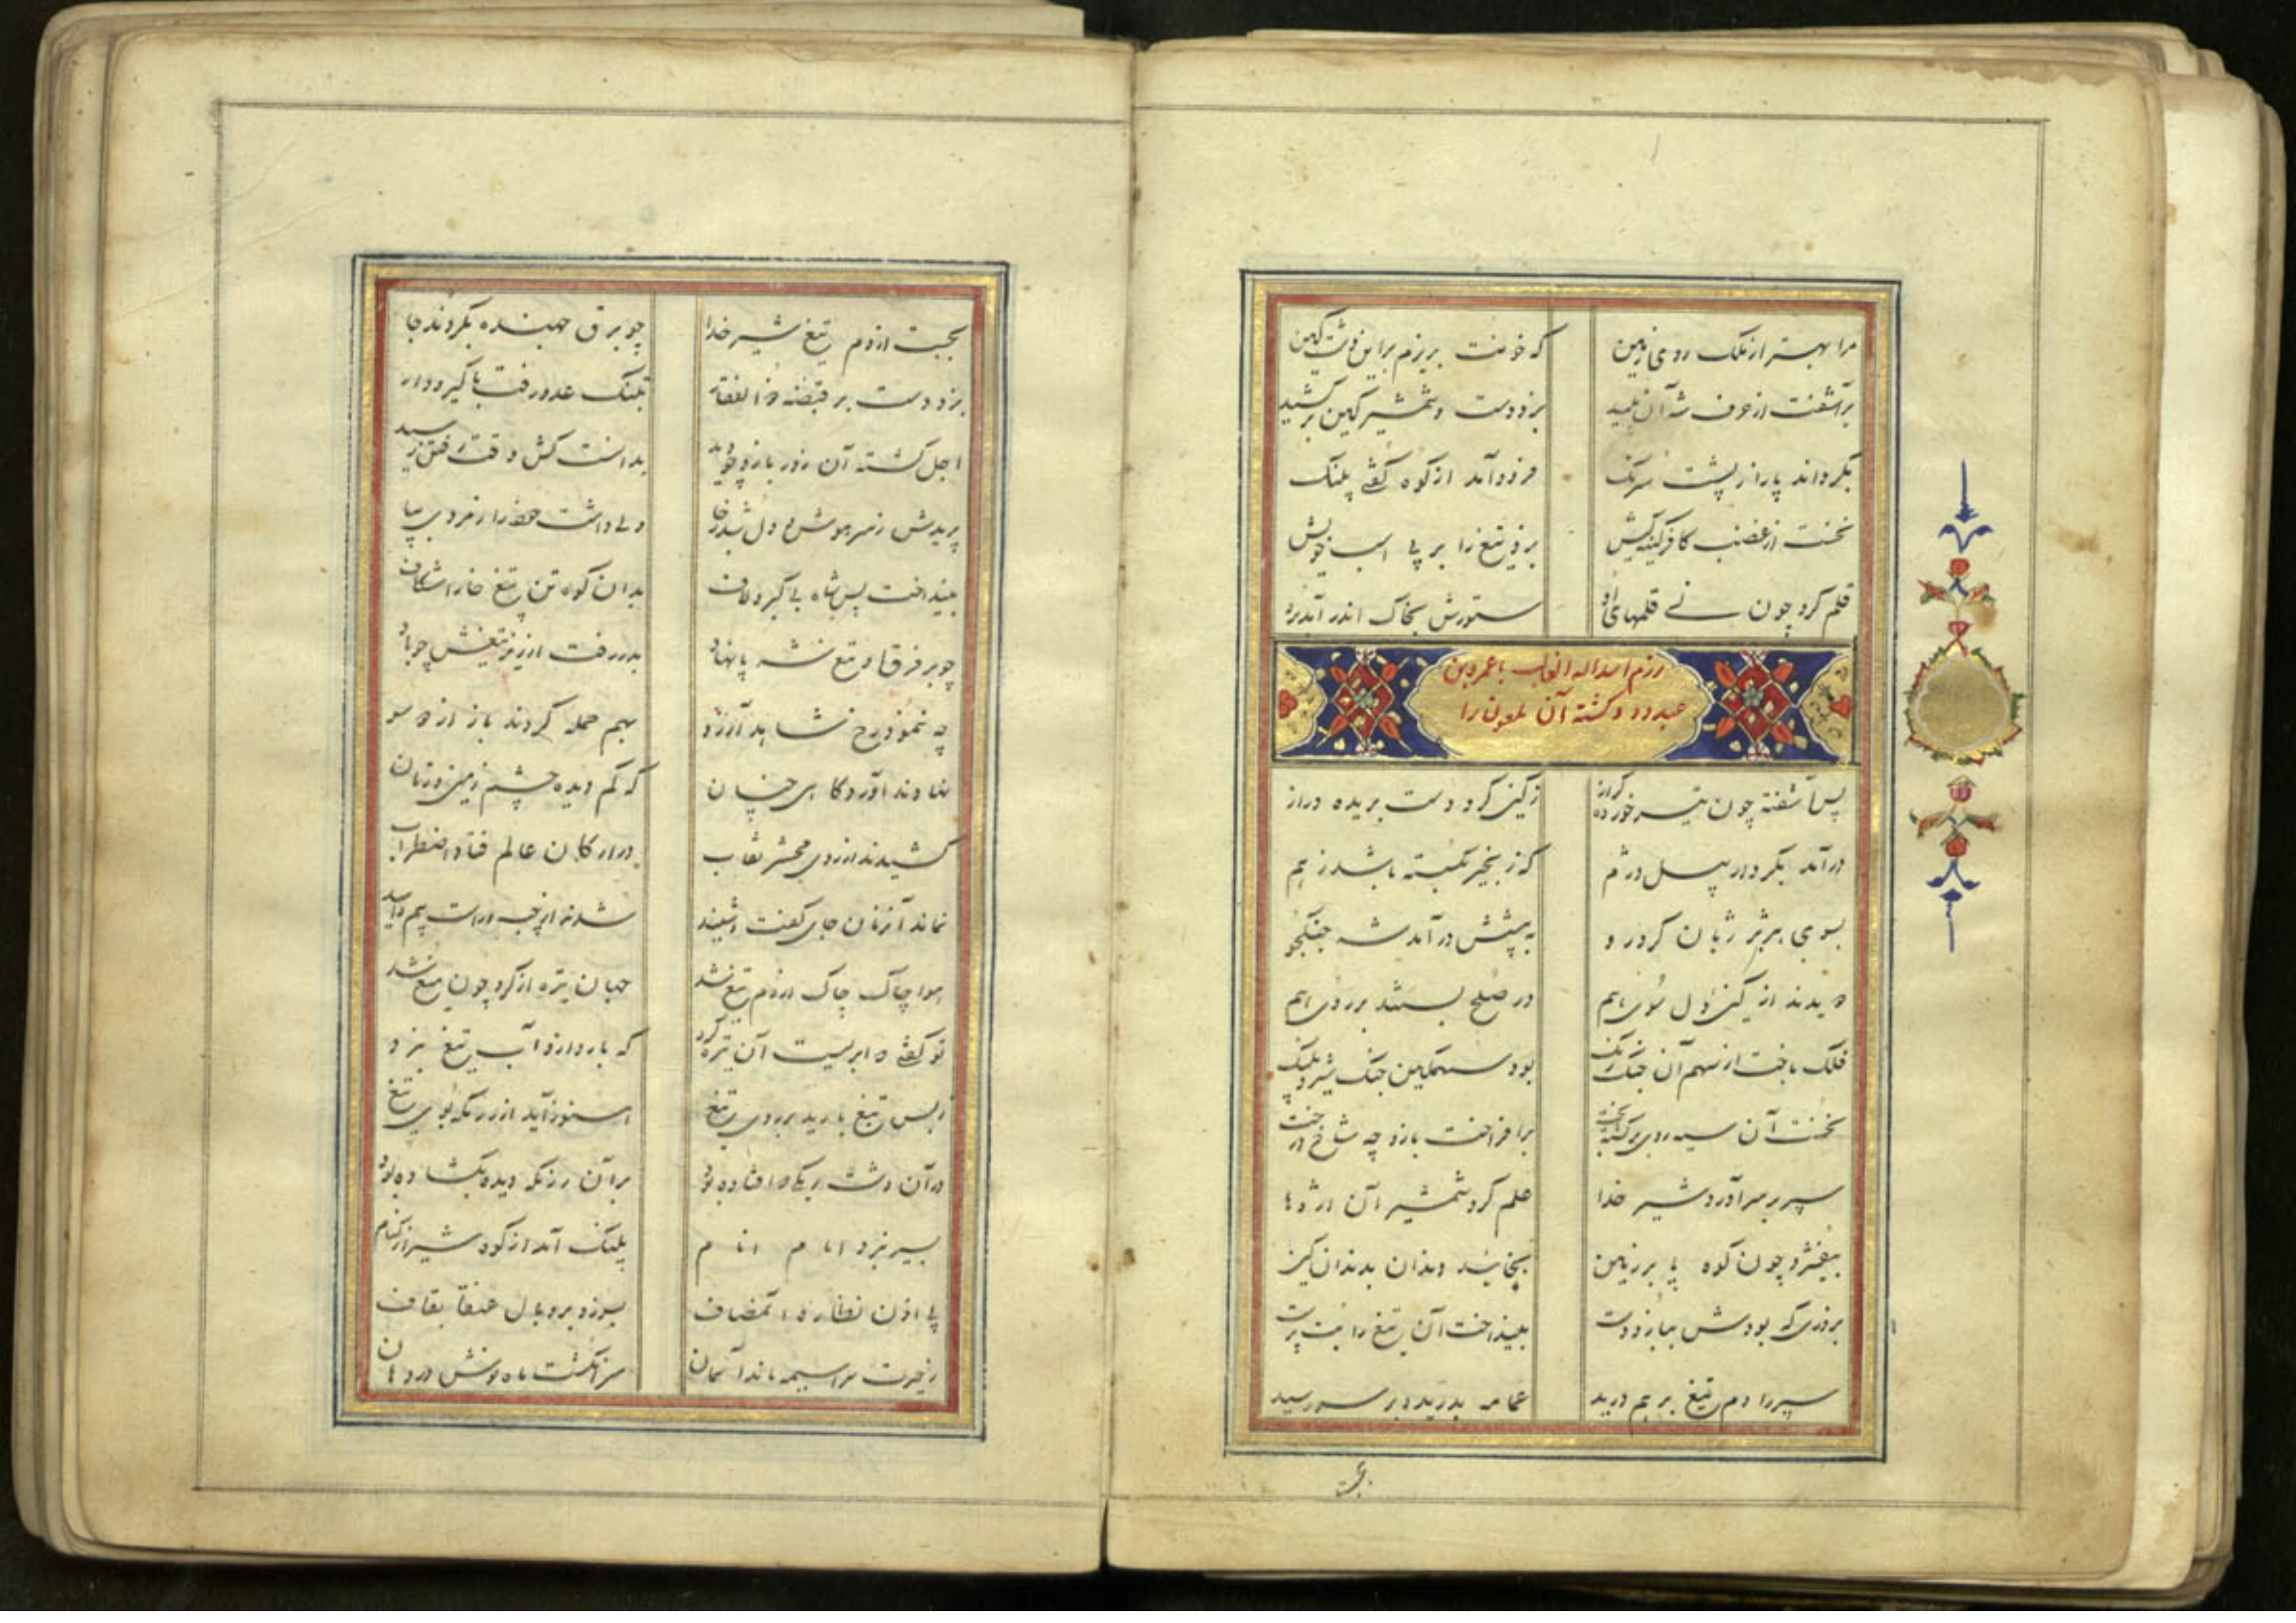 مرا بهتر از ملک روی زمین که خونت بریزم براین دشت کین
برآشفت از حرف شه آن پلید بزد دست و شمشیر کین برکشید
بگرداند پا را ز پشت سرنک فرود آمد از کوه گفتی پلنک
نخست از غضب کافر کینه کیش بزد تیغ را بر پی اسب خویش
قلم کرد چون نی قلمهای او ستورش بخاک اندر آمد برو
رزم اسداله الغالب با عمروبن
عبدود و کشته آن ملعون را
پس آشفته چون تیر خورده کراز ز کین کرد دست بریده دراز
درآمد بکردار پیل دژم که زنجیر بکسته باشد ز هم
بسوی هژبر ژیان کرد رو به پیشش درآمد شه جنکجو
دیدند از کین دل سوی هم در صلح بستند بر روی هم
فلک باخت از سهم آن جنک رنک بود سهمکین جنک شیر و پلنک
نخست آن سیه روی برکشته بخت برافراخت بازو چه شاخ درخت
سپر بر سر آورد شیر خدا علم کرد شمشیر آن اژدها
بیفشرد چون کوه پا بر زمین بخائید دندان بدندان کین
بزوری که بودش ببازو و دست بینداخت آن تیغ را بت پرست
سپر را دم تیغ بر هم درید عمامه بدرید و بر سر رسید
بجست از دم تیغ شیر خدا چو برق جهنده بکردند جا
بزد دست بر قبضه ذوالفقار بجنک عدو رفت با کیر و دار
اجل کشته آن زور بازو چو دید بدانست کش وقت رفتن رسید
پریدش ز سر هوش و دل شد ز جا ولی داشت خود را ز مردی بپا
بینداخت پس شاه بی کبر و لاف بدان کوه تن تیغ خارا شکاف
چو بر فرق او تیغ شه پا نهاد بدر رفت از زیر تیغش چو باد
چه ننمود رخ شاهد آرزو بهم حمله کردند باز از دو سو
نهادند آوردکاهی چنان که کم دیده چشم زمین و زمان
کشیدند از روی محشر نقاب در ارکان عالم فتاد اضطراب
نماند آنزمان جای کفت و شنید شدند از چپ و راست بیم و امید
هوا چاک چاک از دم تیغ شد جهان تیره از کرد چون میغ شد
تو کفتی که ابریست آن تیره کرد که بارد ازو آب تیغ نبرد
ز بس تیغ بارید بر روی تیغ هنوز آید از رزمکه بوی تیغ
در آن دشت ریکی که افتاده بود بر آن رزمکه دیده بکشاده بود
بسیر نبرد امام انام پلنک آمد از کوه شیر از کنام
پی اذن نظاره آن مصاف بسوزد پر و بال عنقا بقاف
ز حیرت سراسیمه ماند آسمان سر انکشت ماه نوش در دهان
بجست